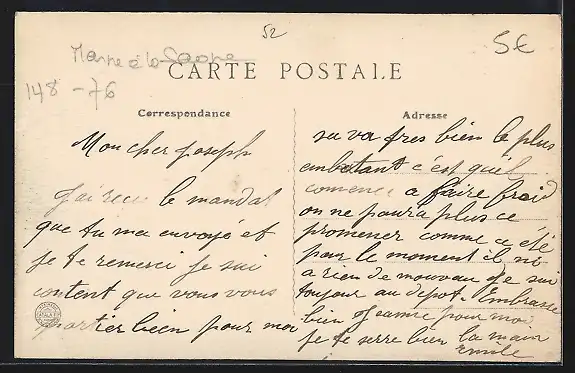 52
5€
Marne à la Saone
148 - 76
CARTE POSTALE
Correspondance
Adresse
Mon cher Joseph
j'ai recu le mandat
que tu ma envoyé et
je te remerci je sui
content que vous vous
portier bien pour moi
sa va tres bien le plus
embetant c'est quel
comence a ffaire froid
on ne poura plus ce
promener comme ce été
pour le moment il ni
a rien de nouveau je sui
toujour au depot. Embrasse
bien Jeanne pour moi
je te serre bien la main
Emile